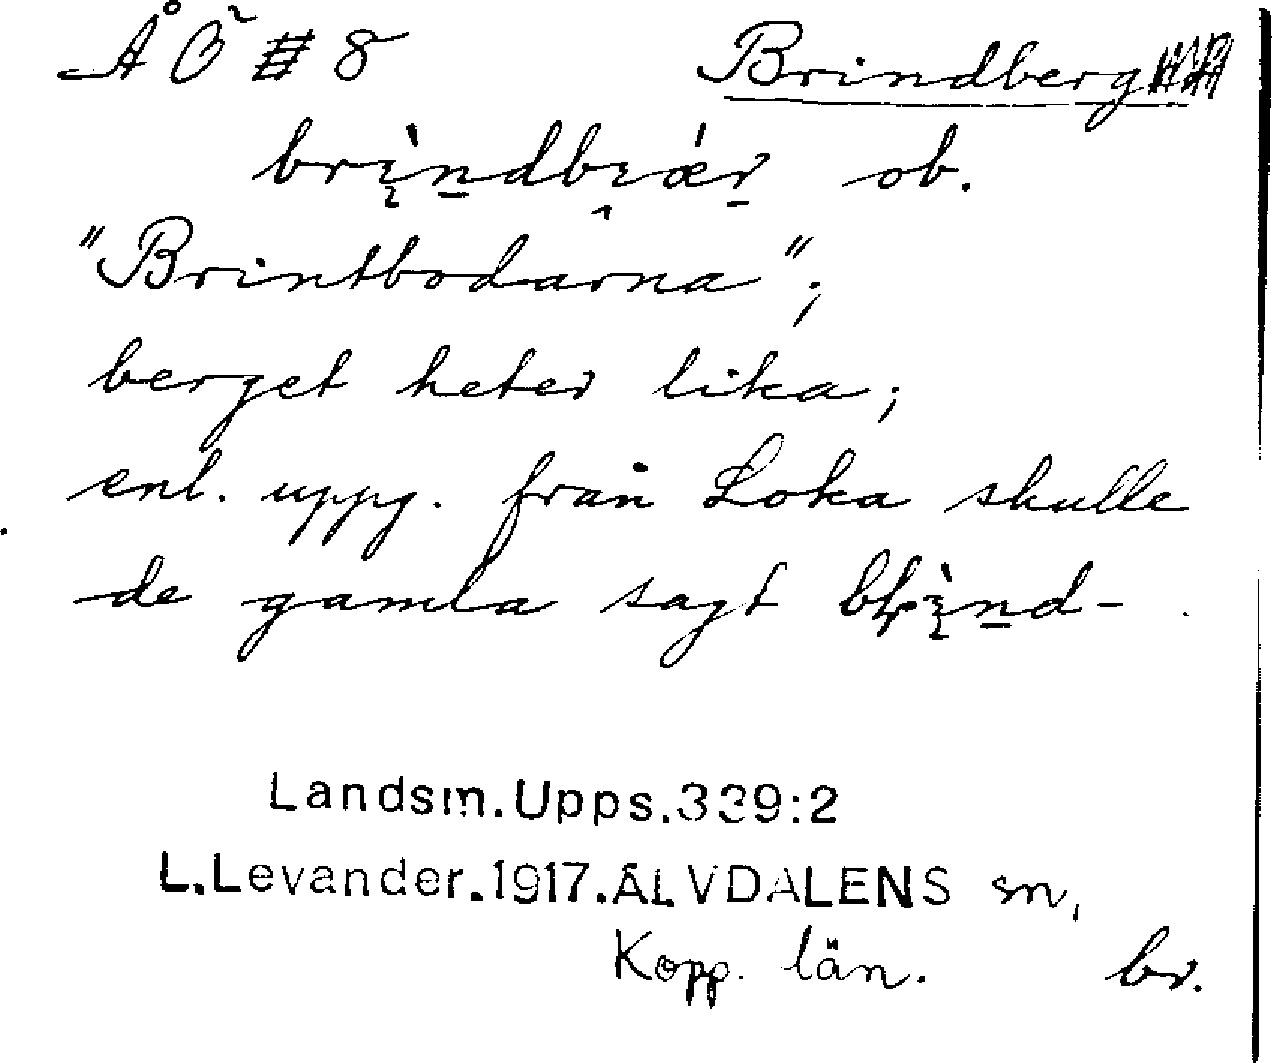 ÅÖ # 8 Brindberg
brìndbɪœ́r ob.
"Brintbodarna";
berget heter lika;
enl. uppg. från Loka skulle
de gamla sagt
Landsm.Upps.339:2
L.Levander.1917.ÄLVDALENS sn,
Kopp. län. br.